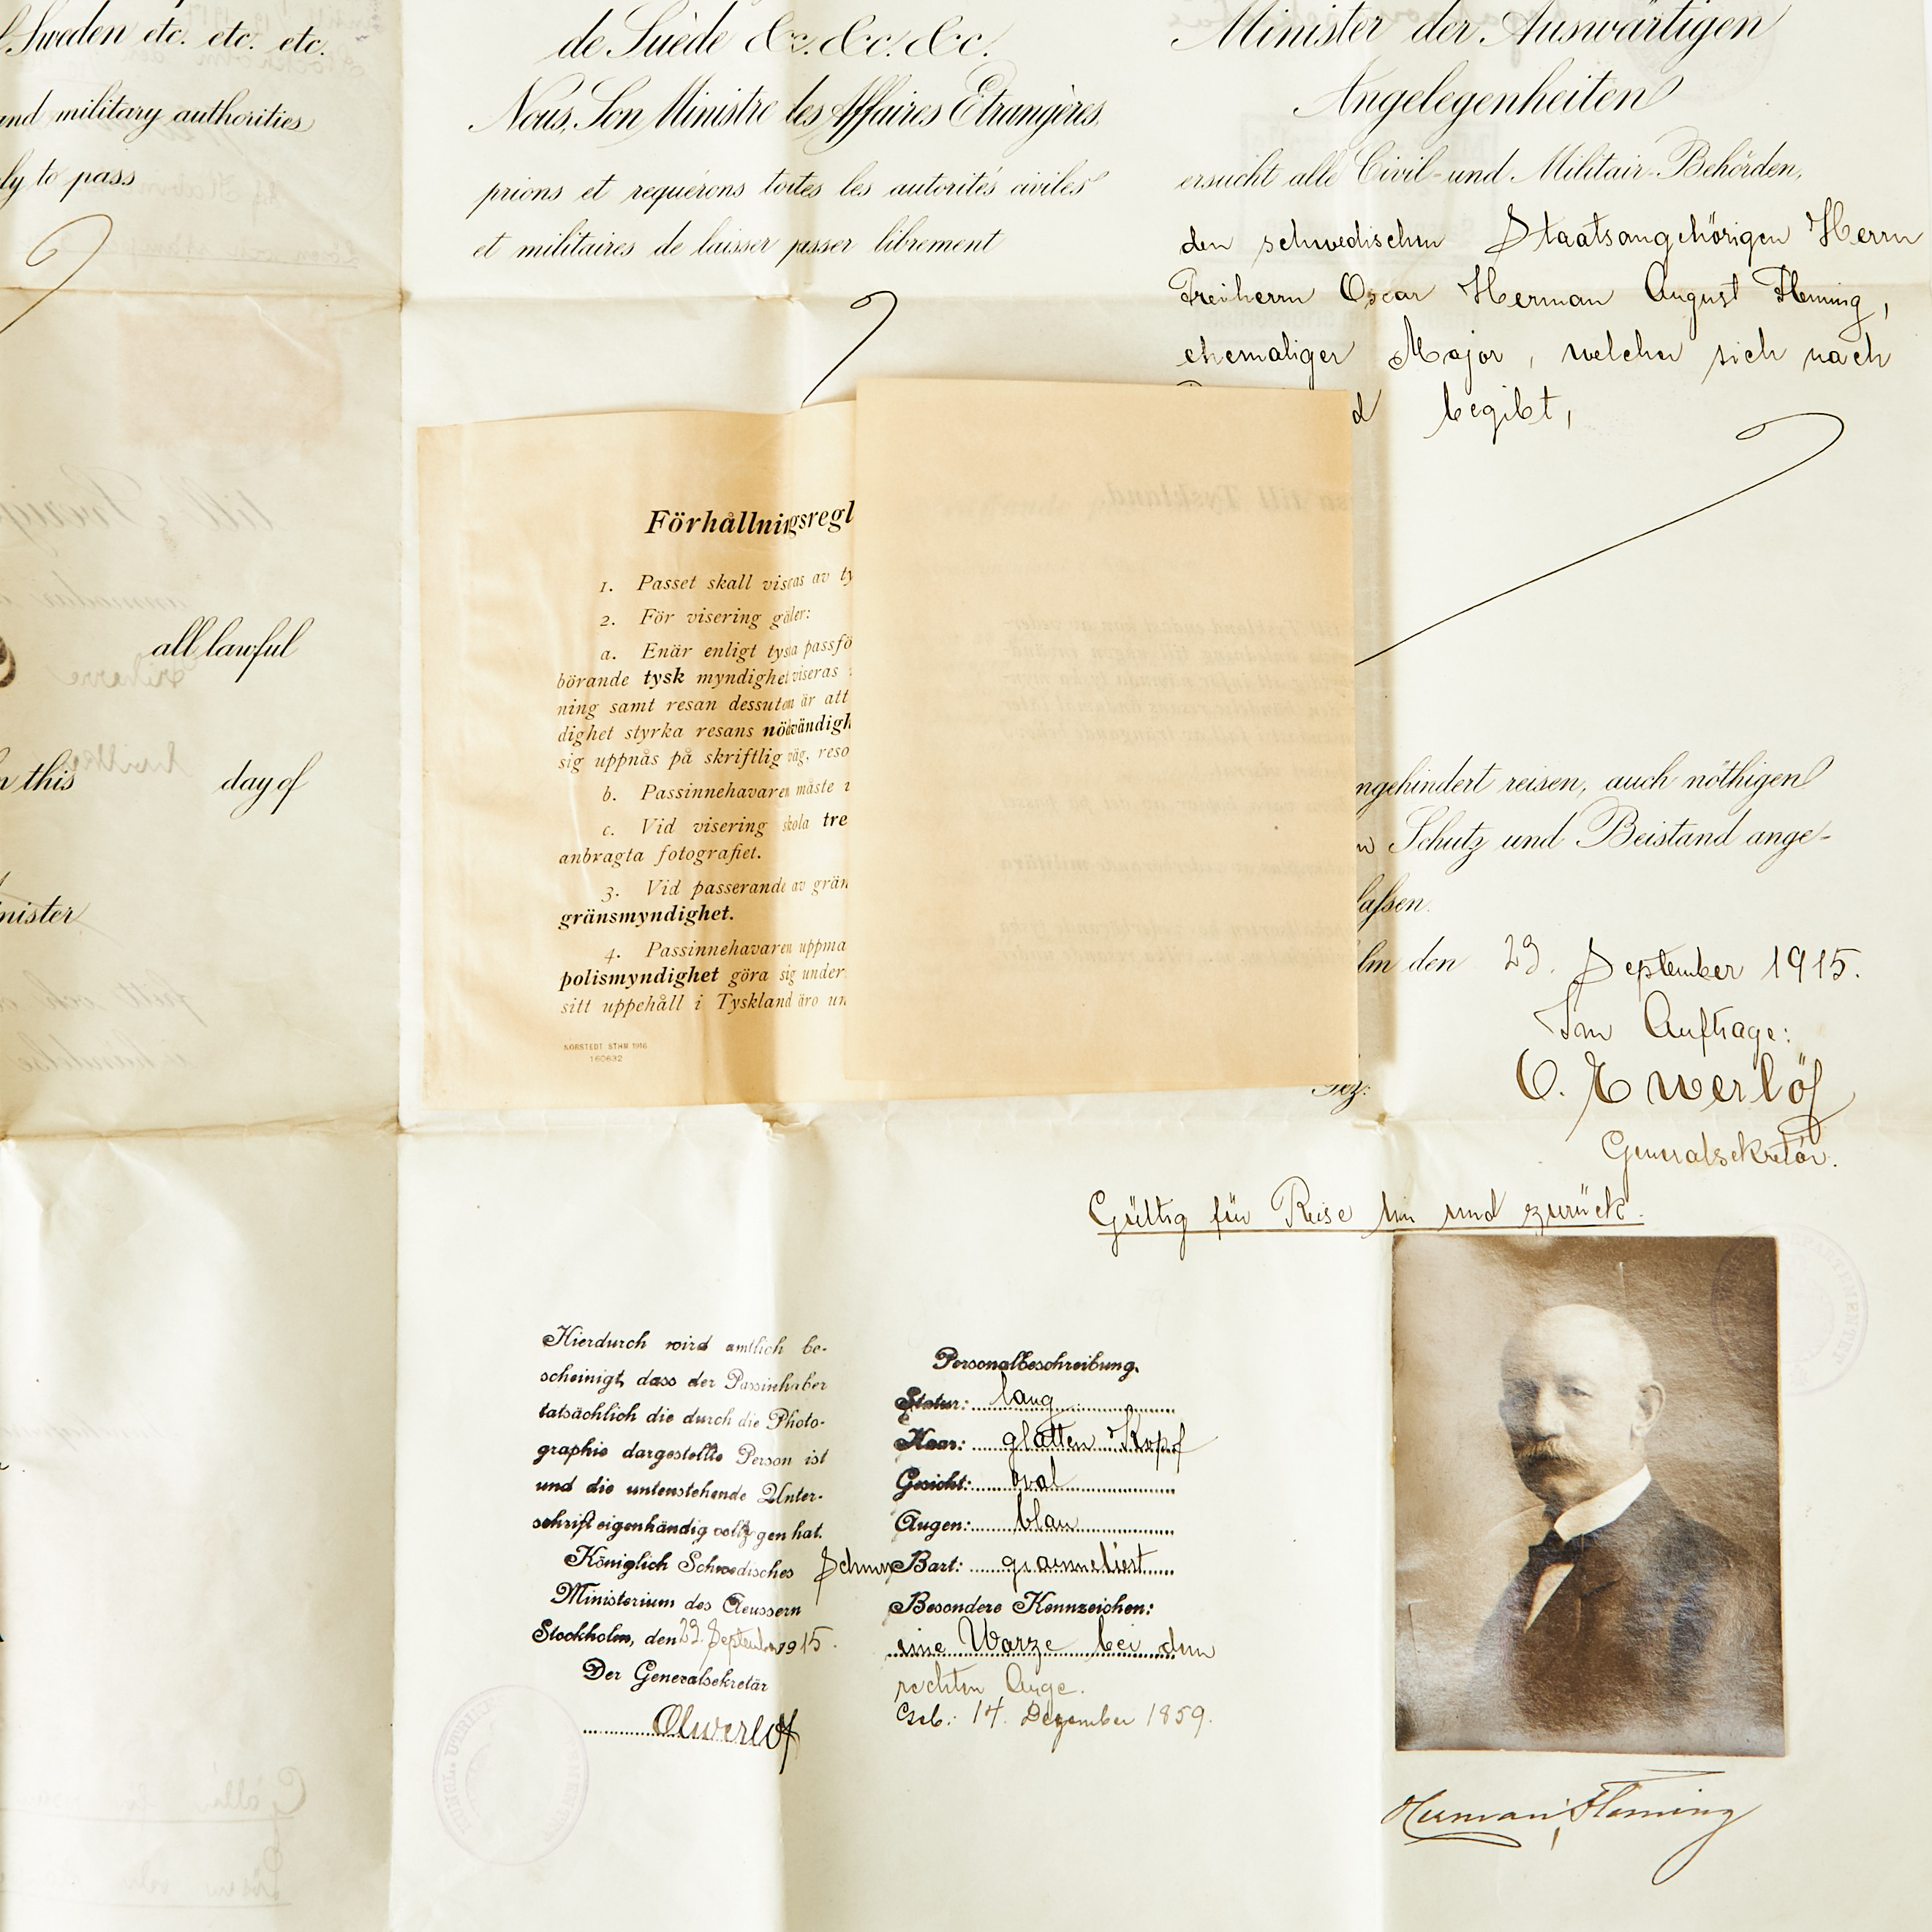 Sweden etc. etc. etc.
and military authorities
to pass
all lawful
this day of
de Suède &c. &c. &c.
Nous, Son Ministre des Affaires Etrangères,
prions et requérons toutes les autorités civiles
et militaires de laisser passer librement
Minister der Auswärtigen
Angelegenheiten
ersucht alle Civil- und Militair-Behörden,
den schwedischen Staatsangehörigen Herrn
Freiherrn Oscar Herman August Fleming,
ehemaliger Major, welcher sich nach
begibt,
ngehindert reisen, auch nöthigen
Schutz und Beistand ange-
lassen.
lm den 23. September 1915.
Im Auftrage:
O. Ewerlöf
Generalsekretär.
Gültig für Reise hin und zurück.
Förhållningsregl
1. Passet skall viseras av ty
2. För visering gäller:
a. Enär enligt tyska passfö
börande tysk myndighet viseras
ning samt resan dessutom är att
dighet styrka resans nödvändigh
sig uppnås på skriftlig väg, reso
b. Passinnehavaren måste
c. Vid visering skola tre
anbragta fotografiet.
3. Vid passerande av grän
gränsmyndighet.
4. Passinnehavaren uppma
polismyndighet göra sig under
sitt uppehåll i Tyskland äro un
NORSTEDT STHM 1916
160632
Hierdurch wird amtlich be-
scheinigt, dass der Passinhaber
tatsächlich die durch die Photo-
graphie dargestellte Person ist
und die untenstehende Unter-
schrift eigenhändig vollzogen hat.
Königlich Schwedisches
Ministerium des Aeussern
Stockholm, den 23. September 1915.
Der Generalsekretär
OEwerlöf
Personalbeschreibung.
Statur: lang
Haar: glatten Kopf
Gesicht: oval
Augen: blau
Bart: grammeliert
Besondere Kennzeichen:
eine Warze bei dem
rechten Auge.
Geb.: 14. Dezember 1859.
Herman Fleming